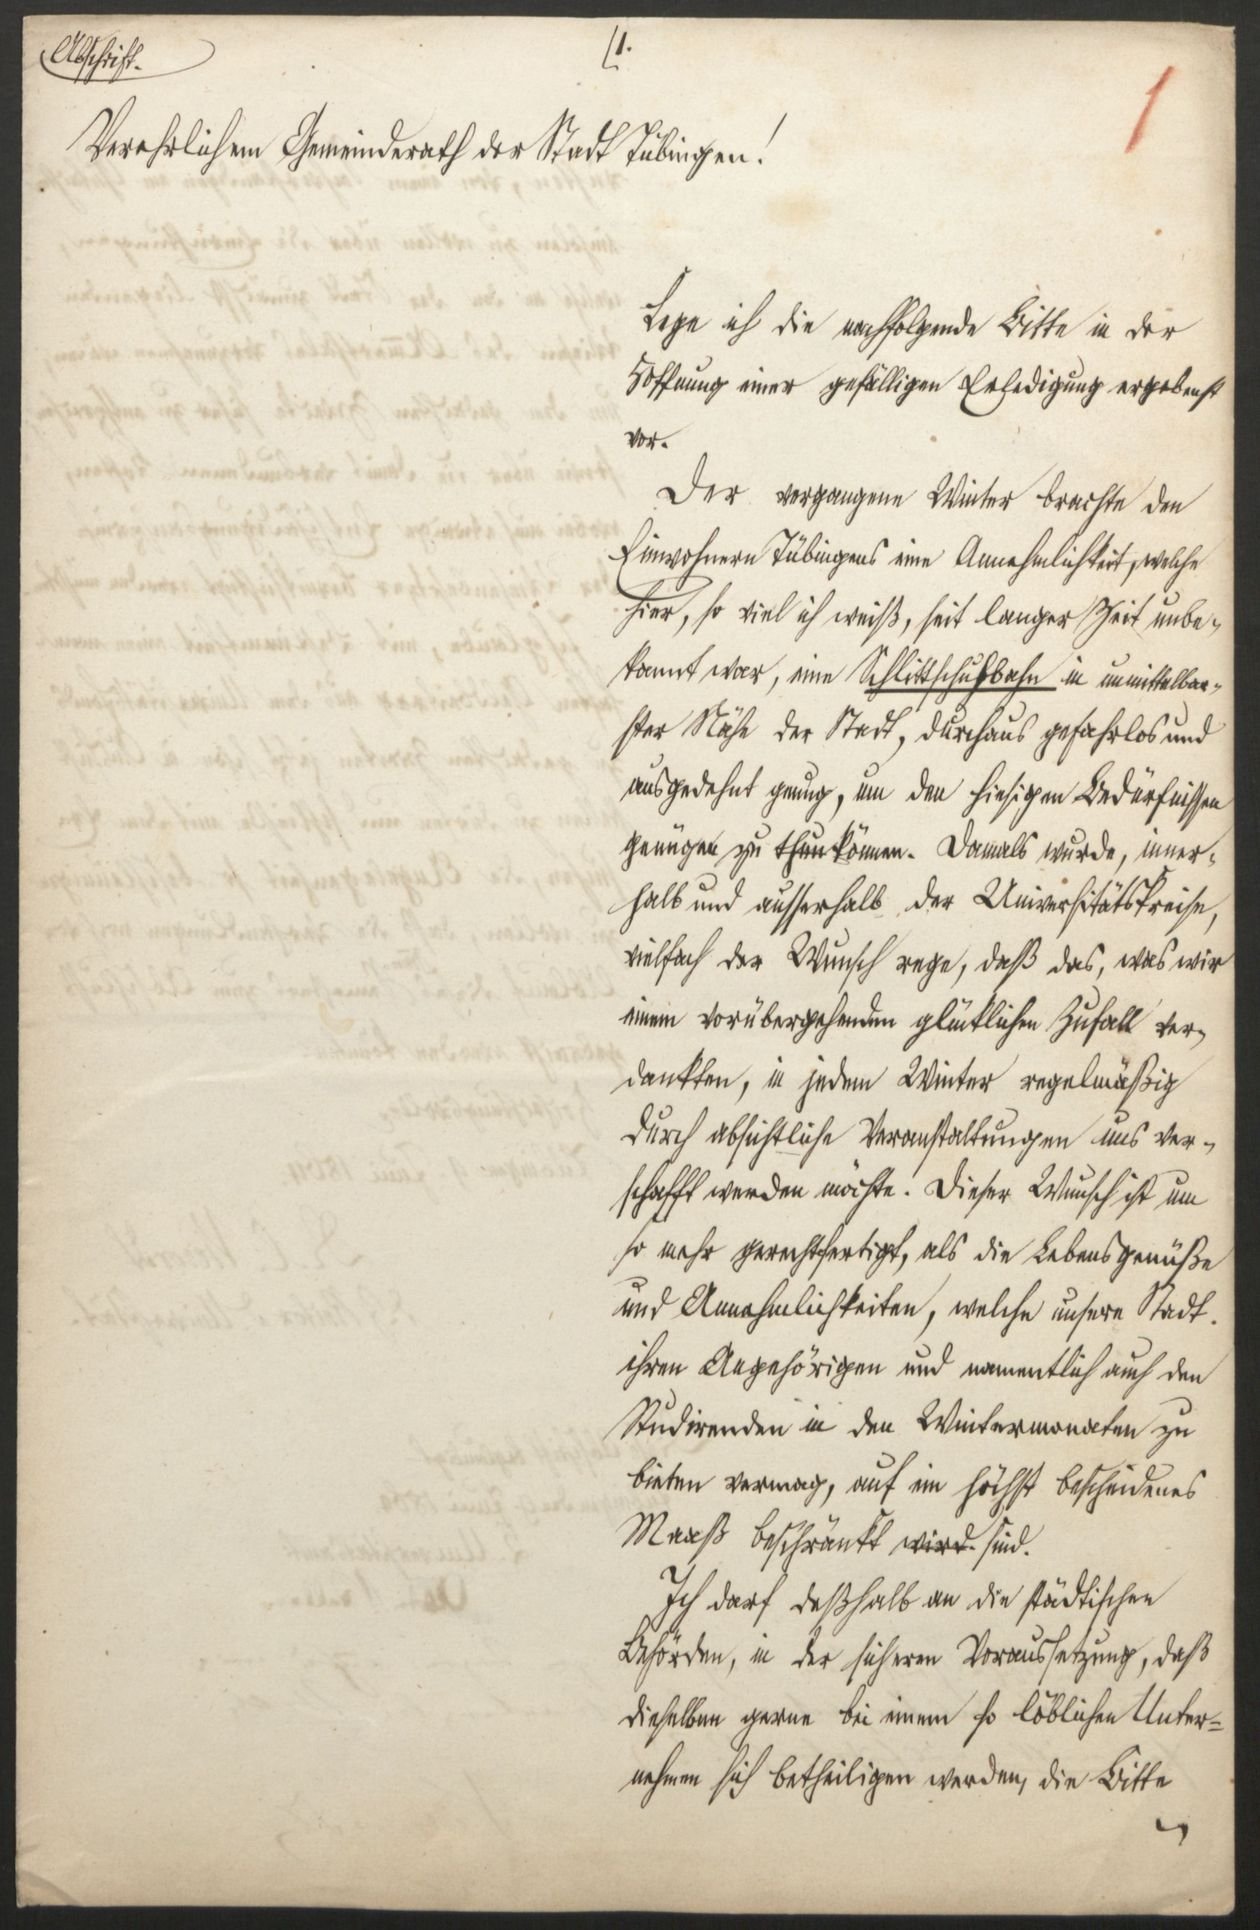 Abschrift.
1.
1
Verehrlichem Gemeinderath der Stadt Tübingen!
Lege ich die nachfolgende Bitte in der
Hoffnung einer gefälligen Erledigung ergebenst
vor.
Der vergangene Winter brachte den
Einwohnern Tübingens eine Annehmlichkeit, welche
hier, so viel ich weiß, seit langer Zeit unbe-
kannt war, eine Schlittschuhbahn in unmittelbar-
ster Nähe der Stadt, durchaus gefahrlos und
ausgedehnt genug, um den hiesigen Bedürfnissen
genügen zu thun können. Damals wurde, inner-
halb und ausserhalb der Universitätskreise,
vielfach der Wunsch rege, daß das, was wir
einem vorübergehenden glücklichen Zufall ver-
dankten, in jedem Winter regelmäßig
durch absichtliche Veranstaltungen uns ver-
schafft werden möchte. Dieser Wunsch ist um
so mehr gerechtfertigt, als die Lebensgenüße
und Annehmlichkeiten, welche unsere Stadt
ihren Angehörigen und namentlich auch den
Studirenden in den Wintermonaten zu
bieten vermag, auf ein höchst bescheidenes
Maaß beschränkt wird sind.
Ich darf deßhalb an die städtischen
Behörden, in der sicheren Voraussetzung, daß
dieselben gerne bei einem so löblichen Unter-
nehmen sich betheiligen werden, die Bitte